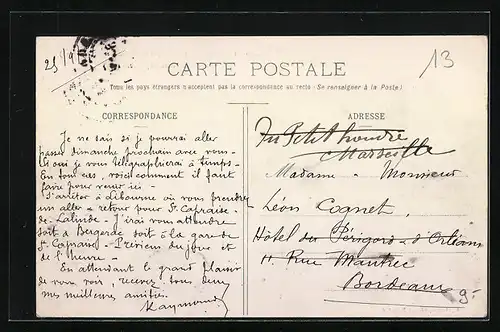 25/9
13
CARTE POSTALE
Tous les pays étrangers n'acceptent pas la correspondance au recto (Se renseigner à la Poste)
CORRESPONDANCE
Je ne sais si je pourrai aller
passer dimanche prochain avec vous -
Si oui je vous télégraphierai à temps -
En tous cas, voici comment il faut
faire pour venir ici -
S'arrêter à Libourne où vous prendrez
un aller & retour pour St. Capraise-
de Lalinde - J'irai vous attendre
soit à Bergerac soit à la gare de
St. Capraise - Préviens du jour et
de l'heure -
En attendant le grand plaisir
de vous voir, recevez tous deux
mes meilleures amitiés.
Raymond
ADRESSE
Au Petit Londre
Marseille
Madame - Monsieur
Léon Cognet
Hôtel des Périgord & d'Orléans
11 Rue Mautrec
Bordeaux
9-